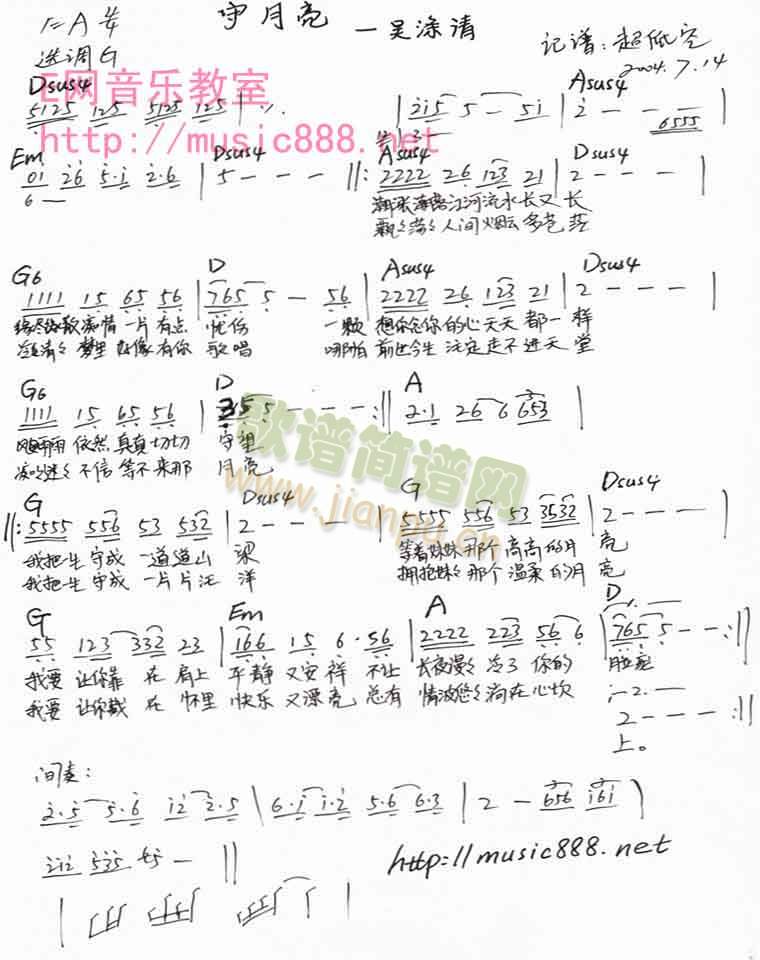 1=A 4/4 守月亮 — 吴涤清
选调G 记谱:超低空
2004.7.14
E网音乐教室
http://music888.net
Dsus4 Asus4
5125 125 5125 125 | ٪ | 2i5 5 — 5i | 2 - - 6555 |
Em Dsus4 Asus4 Dsus4
01 26 5·1 2·6 | 5 - - - ‖: 2222 26 123 21 | 2 - - - |
潮涨潮落江河流水长又长
飘飘荡荡人间烟云多苍茫
G6 D Asus4 Dsus4
1111 15 65 56 | 765 5 — 56 | 2222 26 123 21 | 2 - - - |
缘尽缘散痴情一片有点 忧伤 一颗 想你念你的心天天都一 样
冷冷清清梦里好像有你 歌唱 哪怕 前世今生注定走不进天 堂
G6 D A
1111 15 65 56 | 35 5 - - - :‖ 2·1 26 6 653 |
风风雨雨依然真真切切 守望
不信等不来那 月亮
G Dsus4 G Dsus4
‖: 5555 556 53 532 | 2 - - - | 5555 556 53 3532 | 2 - - - |
我把一生守成一道道山 梁 等着妹妹那个高高的月 亮
我把一生守成一片片汪 洋 拥抱妹妹那个温柔的月 亮
G Em A D
55 123 332 23 | 166 15 6·56 | 2222 223 56 6 | 765 5 - - :‖
我要让你靠在肩上 平静又安祥 不让 长夜漫漫冷了你的 脸庞
我要让你戴在怀里 快乐又漂亮 总有 情波悠悠淌在心坎
1-2.
2 - - - :‖
上。
间奏:
2·5 5·6 12 2·5 | 6·1 1·2 5·6 6·3 | 2 — 656 161 |
212 535 5 — ‖
http://music888.net
歌谱简谱网
www.jianpu.cn